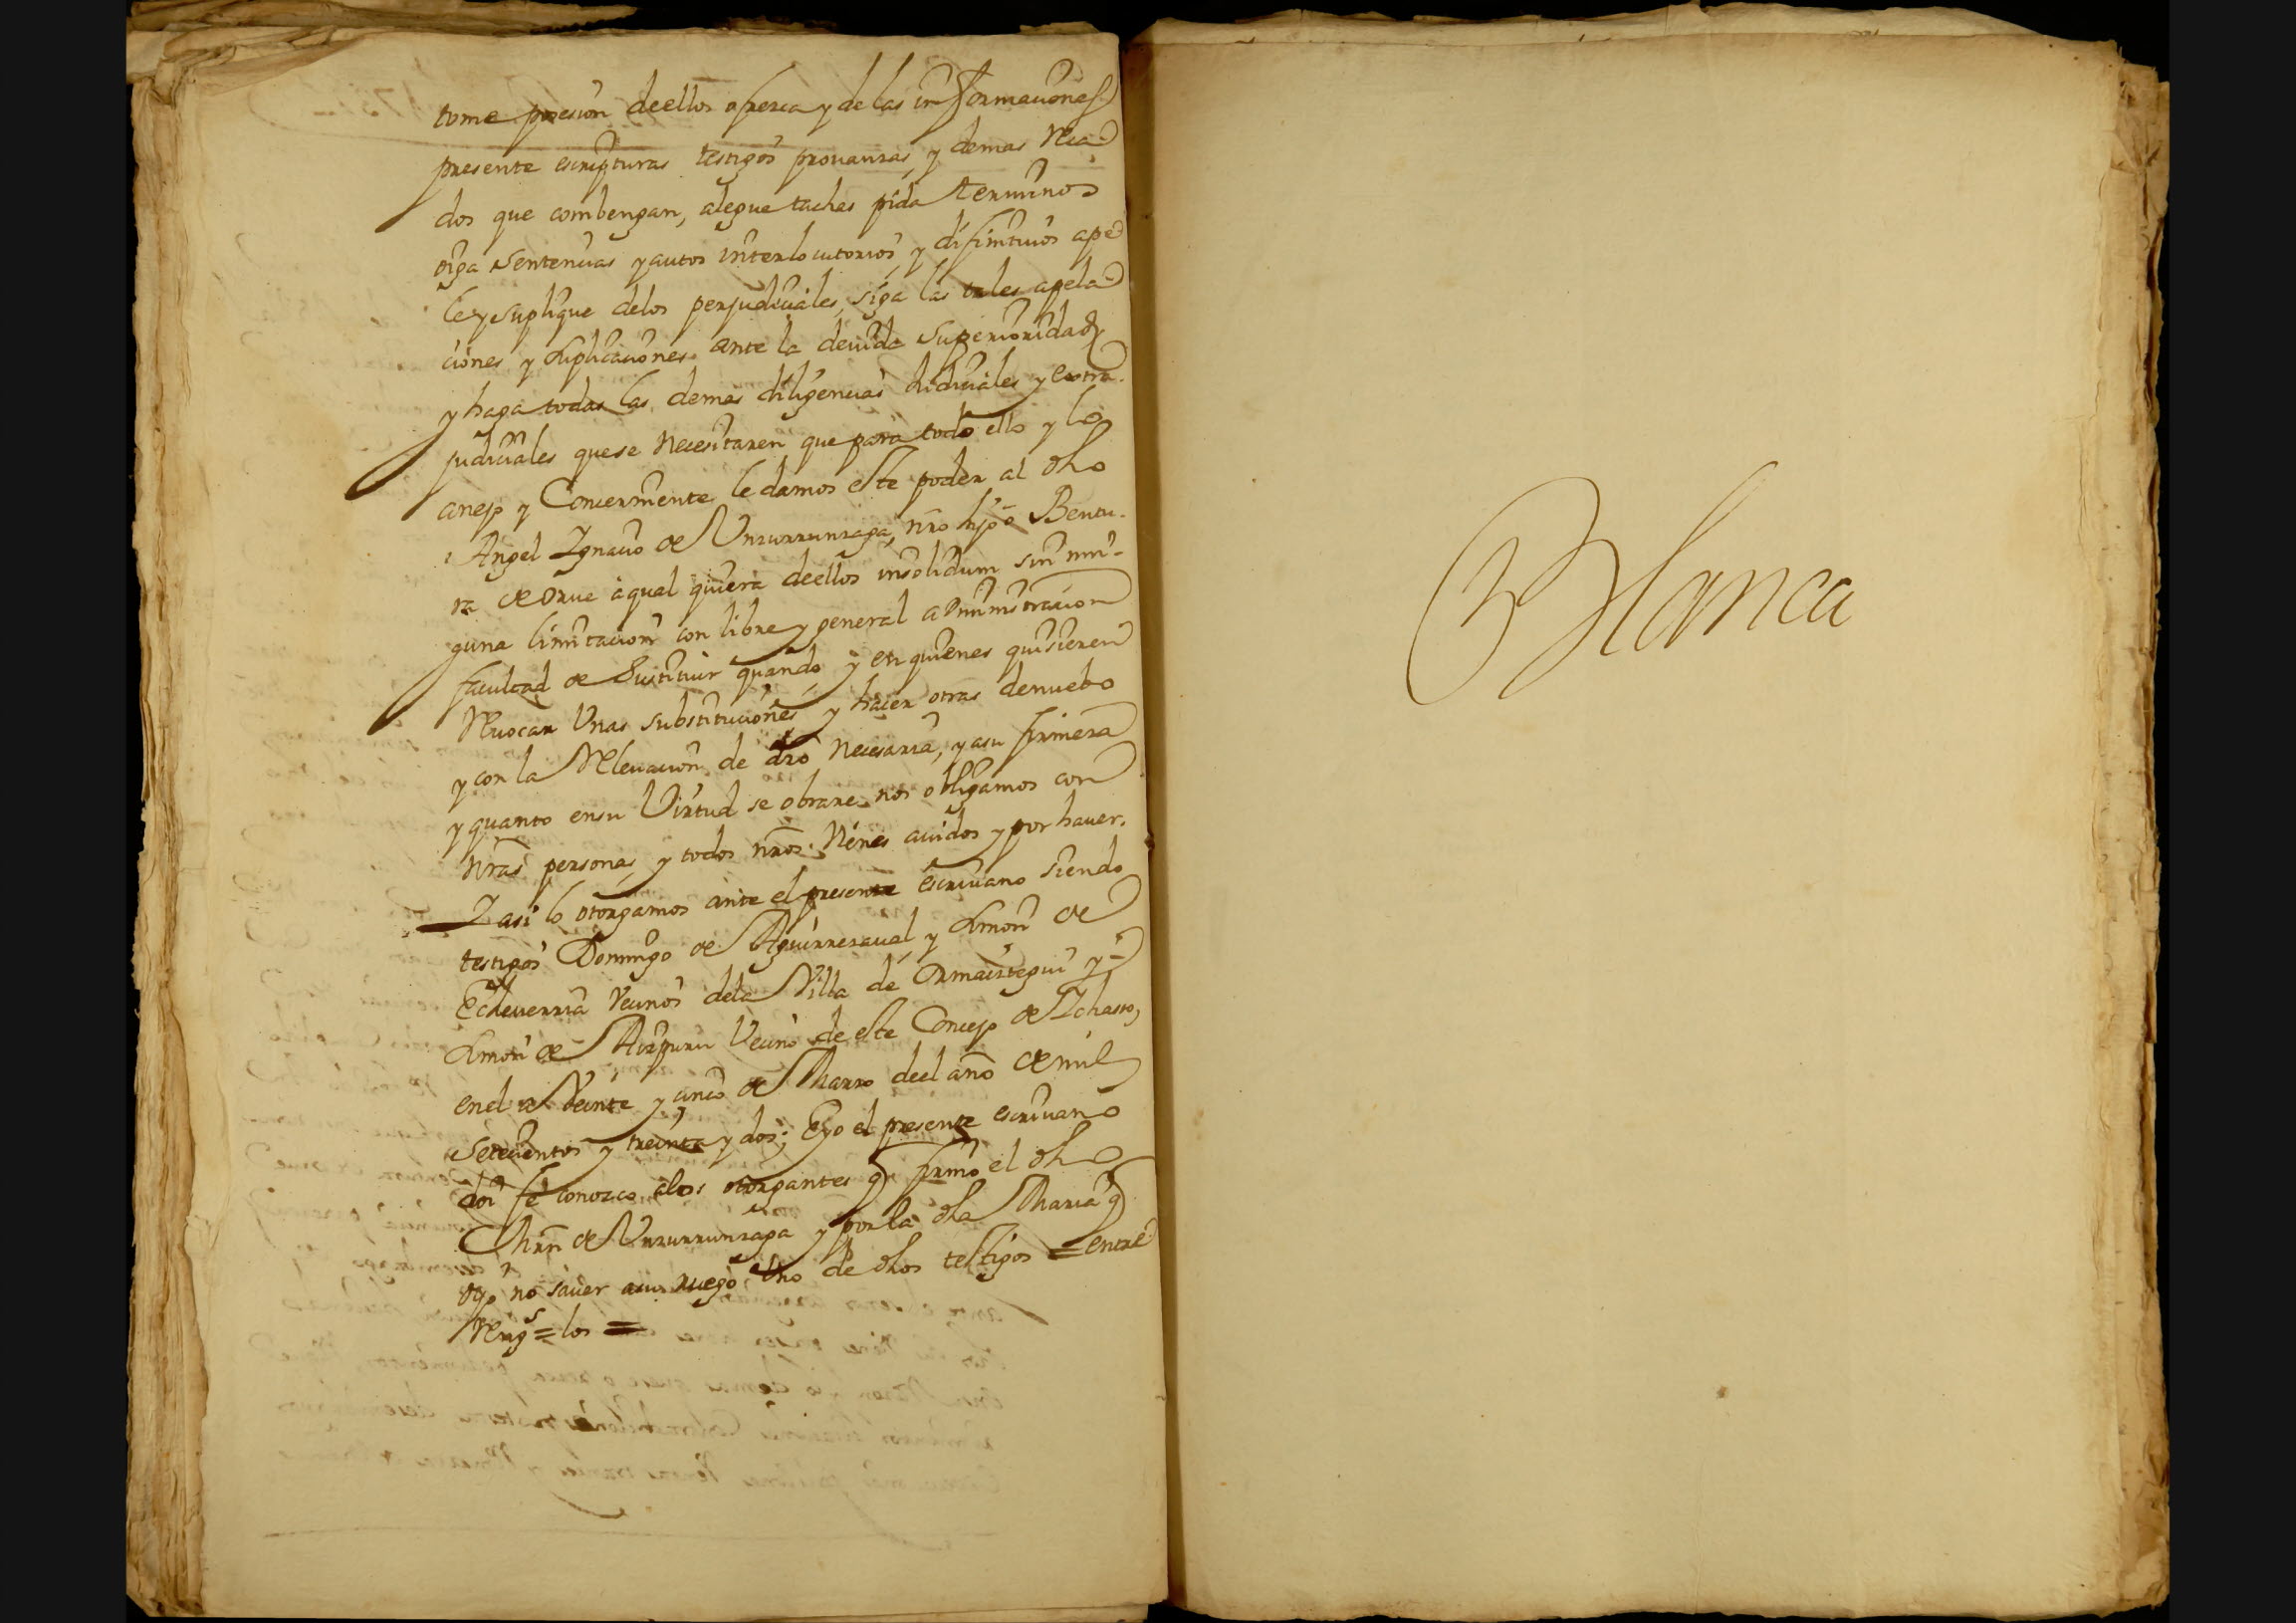 tome posesion deellos ofresca y de las informaciones
presente escripturas testigos prouanzas, y demas Reca
dos que combengan, alegue tachas pida terminos
oiga sentencias y autos interlocutorios, y difinitiuos ape
le y suplique delos perjudiciales, siga las tales apela
ciones y suplicaciones ante la deuida superioridad
y haga todas las demas diligencias Judiciales y extra
judiciales que se necesitaren que para todo ello y lo
anejo y Concerniente le damos este poder al dho
Angel Ignacio de Vnzurrunzaga, nro hijo ô Bentu-
ra de Orue â qual quiera deellos insolidum sin nin-
guna limitacion con libre y general administracion
facultad de Sustituir quando, y en quienes quisieren
Reuocar Vnas substituciones y hacer otras denuebo
y con la Releuacion de dro necesaria, y a su firmeza
y quanto ensu Virtud se obrare nos obligamos con
nras personas, y todos nros Vienes auidos y por hauer.
Y asi lo otorgamos ante el presente escriuano siendo
testigos Domingo de Aguirrezaual, y Simon de
Echeuerria Vecinos dela Villa de Ormaiztegui y
Simon de Aizpuru Vecino de este Concejo de Ichasso,
en el a Veinte y cinco de Marzo deel año de mil
Setecientos y treinta y dos; E yo el presente escriuano
doi fe conozco alos otorgantes q firmo el dho
Mrn de Vnzurrunzaga y por la dha Maria q
dijo no sauer a su ruego Vno de dhos testigos = entre
Rengs = los =
Blanca